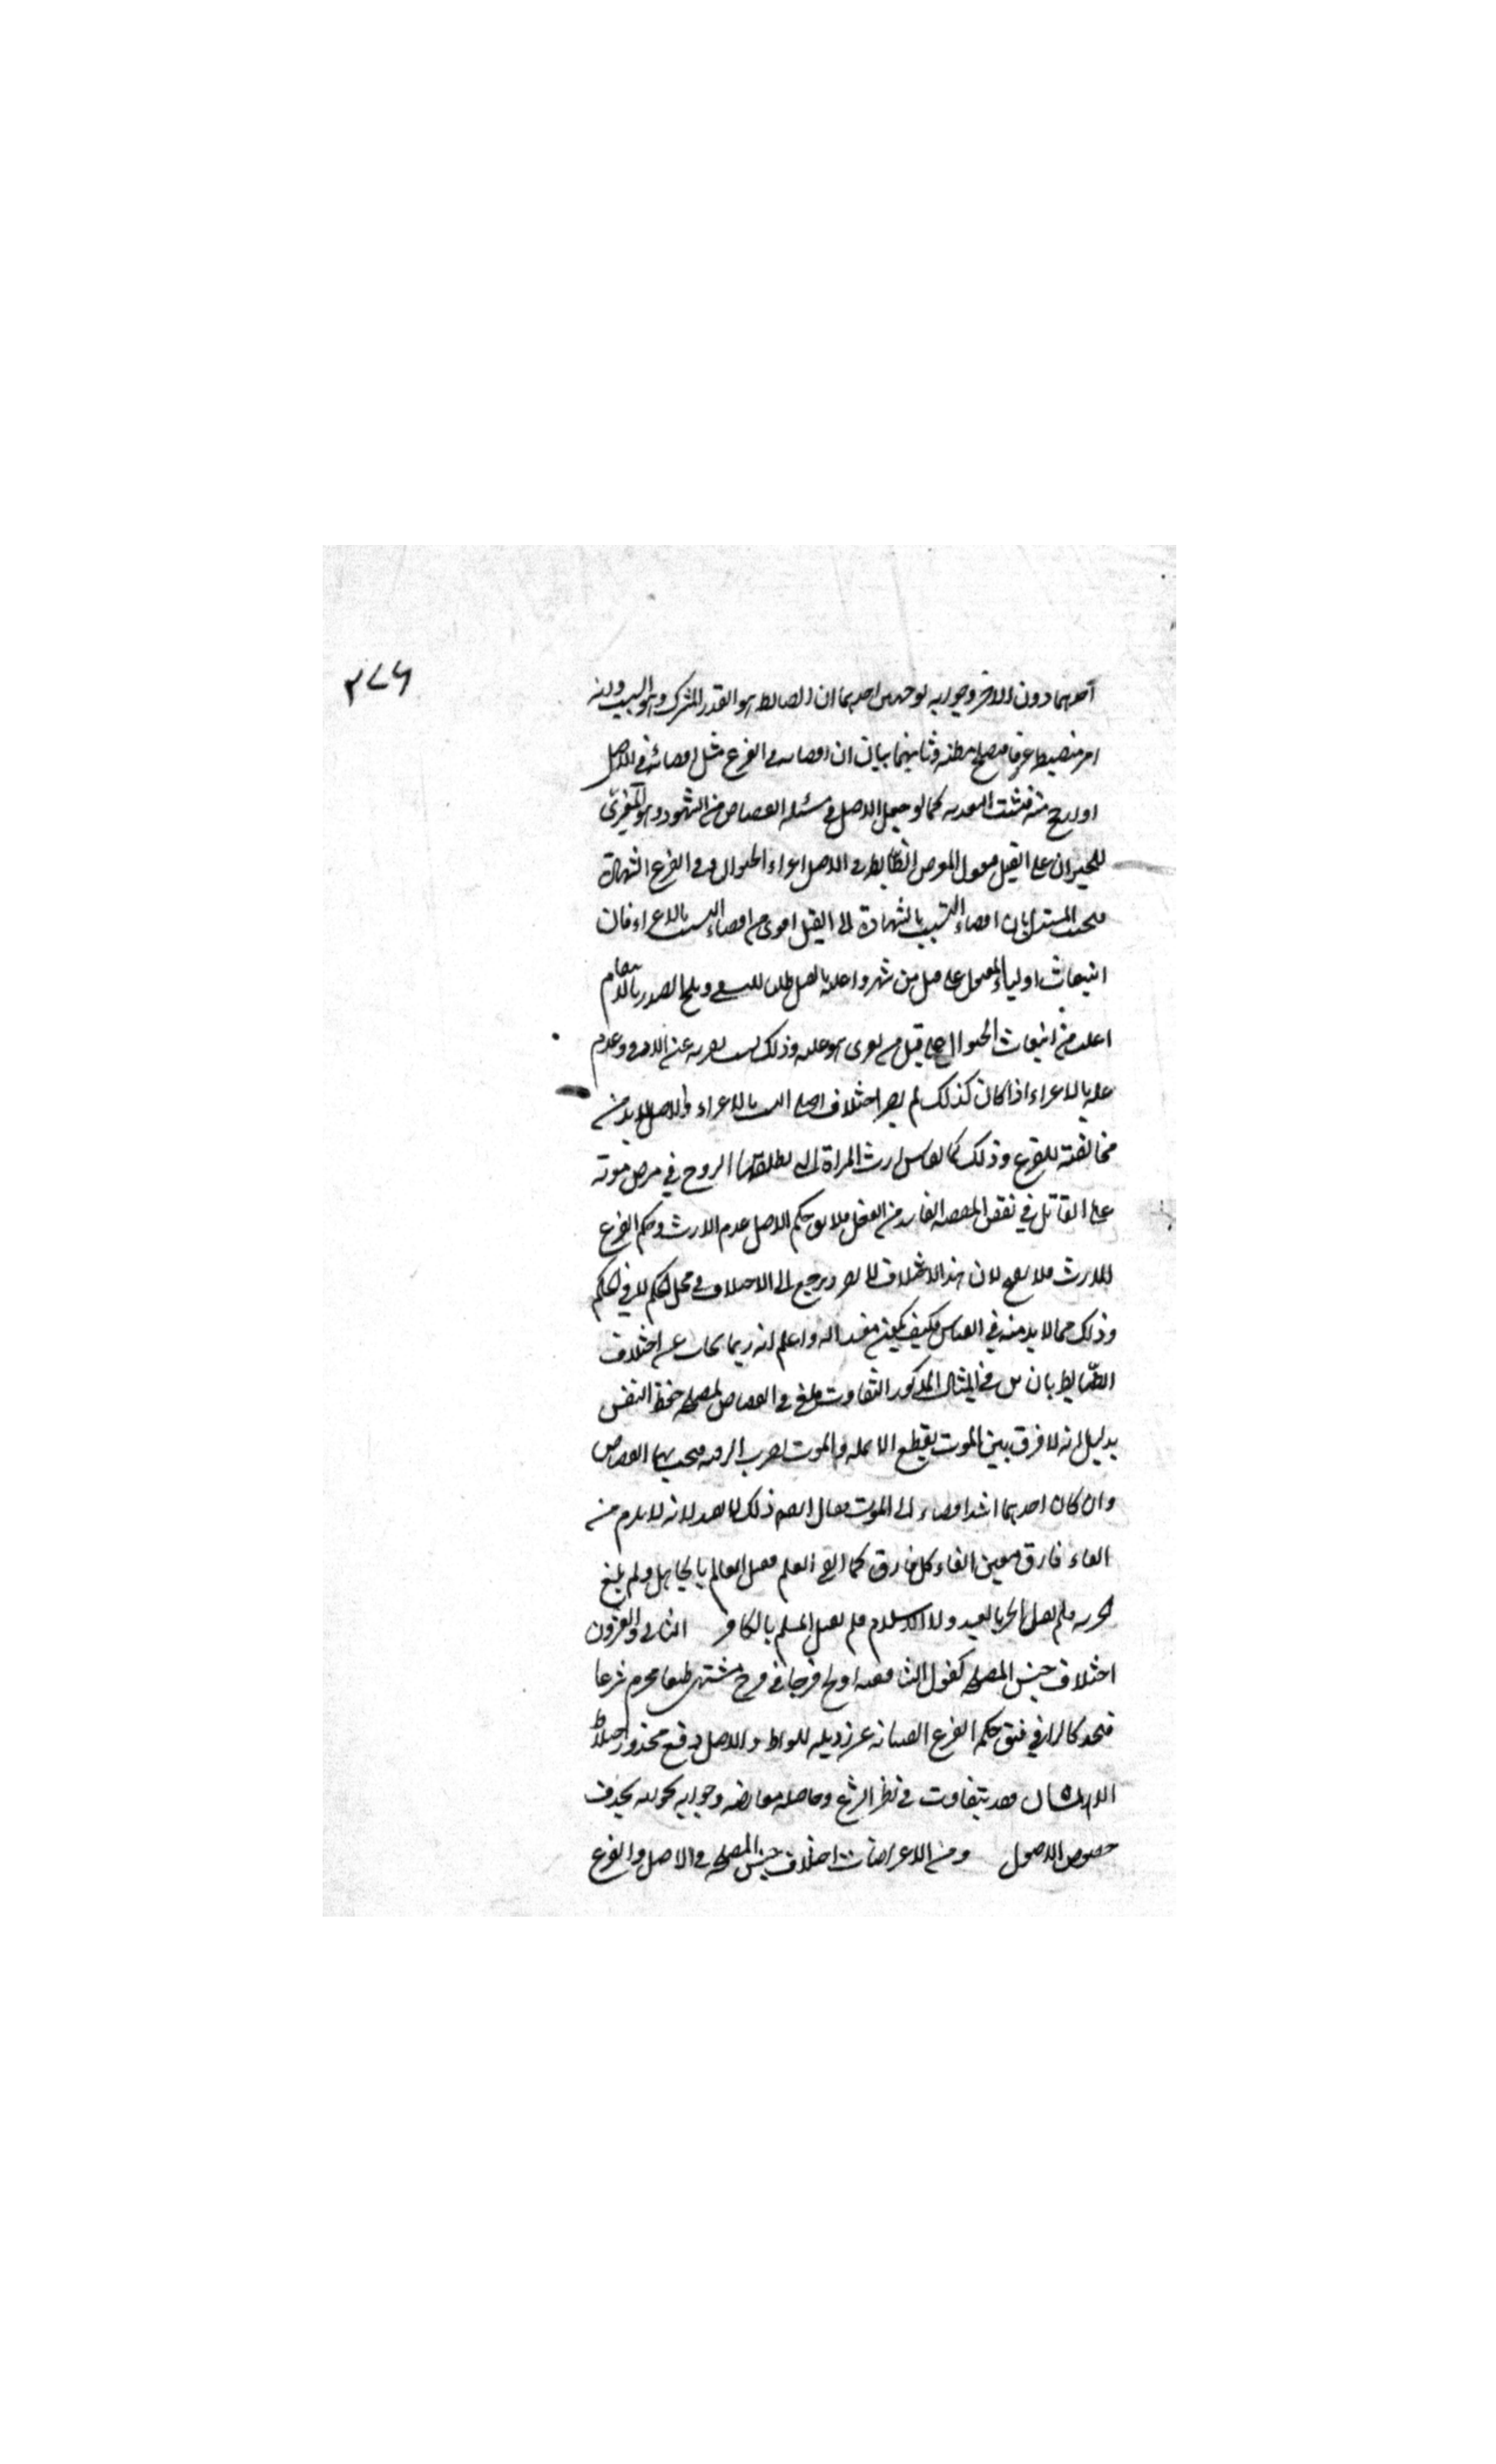 ٢٧٤
احدهما دون الاخر وجوابه بوجهين احدهما ان الضابط هو القدر المشترك وهو التسبب وانه
امر منضبط عرفا فيصلح مظنة وثانيهما بيان ان افضاءه في الفرع مثل افضائه في الاصل
او ارجح منه فتثبت التعدية كما لو جعل الاصل في مسئلة القصاص من الشهود وهو المغري
للحيوان على القتل فيقول المعترض الضابط في الاصل اغراء الحيوان وفي الفرع الشهادة
فيجيب المستدل بان افضاء التسبب بالشهادة الى القتل اقوى من افضاء التسبب بالاغراء فان
انبعاث اولياء المقتول على قتل من شهدوا عليه بالقتل طلبا للتشفي وثلج الصدر بالانتقام
اغلب من انبعاث الحيوان على قتل من يغرى هو عليه وذلك بسبب نفرته عن الادمي وعدم
علمه بالاغراء اذا كان كذلك لم يضر اختلاف اصلي التسبب بالاغراء والاصل لا بد من
مخالفته للفرع وذلك كما يقاس ارث المراة التي يطلقها الزوج في مرض موته
على القاتل في نقض المقصد الفاسد من الفعل فلا يق حكم الاصل عدم الارث وحكم الفرع
الارث فلا يصح لان هذا الاختلاف لا يضر ويرجع الى الاختلاف في محل الحكم لا في الحكم
وذلك مما لا بد منه في القياس فكيف يكون مفسدا له واعلم انه ربما يجاب عن اختلاف
الضابط بان يق في المثال المذكور التفاوت ملغى في القصاص لمصلحة حفظ النفس
بدليل انه لا فرق بين الموت بقطع الانملة والموت بضرب الرقبة فيجب بهما القصاص
وان كان احدهما اشد افضاء الى الموت فقال بعضهم ذلك لا يفيد لانه لا يلزم من
الغاء فارق معين الغاء كل فارق كما الغي العلم فقتل العالم بالجاهل ولم يلغ
الحرية فلم يقتل الحر بالعبد ولا الاسلام فلم يقتل المسلم بالكافر الثاني والعشرون
اختلاف جنس المصلحة كقول الشافعية اولج فرجا في فرج مشتهى طبعا محرم شرعا
فيحد كالزاني فيق حكم الفرع الصيانة عن رذيلة اللواط والاصل دفع محذور اختلاط
الانساب وقد يتفاوت في نظر الشرع وحاصله معارضة وجوابه كجوابه بحذف
خصوص الاصل ومن الاعتراضات اختلاف جنس المصلحة في الاصل والفرع